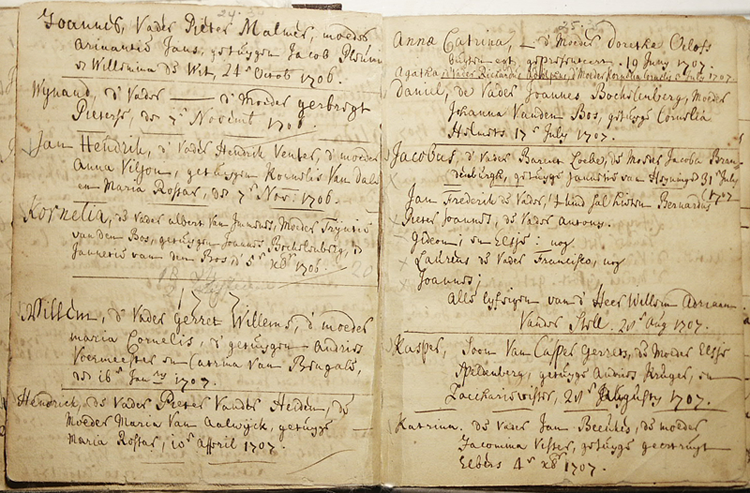 Joannes, Vader Pieter Malmer, moeder
Jans, getuygen Jacob
en Willemina de Wit, 24 Octob 1706.
Wynand, d' Vader — d' Moeder gerbregt
Pieterse, de 7 Novemb 1706
Jan Hendrik, d' Vader Hendrik Venter, d' moeder
Anna Viljon, getuygen Kornelis Van Dalen
en Maria Rossar, de 7 Nov. 1706.
Kornelia, de Vader albert Van Jmmenes, Moeder Tryntie
van den Bos, getuygen Joannes Bockelenberg, en
van den Bos de 5 xbr 1706.
1707
Willem, d' Vader gerret Willems, d' moeder
maria Cornelis, d' getuygen Andries
Voermeester en Catrina Van Bengale,
de 16 Jan 1707.
Hendrick, de Vader Pieter Vander Heiden, de
Moeder Maria Van Aalwyck, getuyge
Maria Rossar, 10 April 1707.
Anna Catrina, — d' Moeder Doretha Oelofs
19 Juny 1707.
Agatha, July 1707
Daniel, de Vader Joannes Bockelenberg, Moeder
Johanna Vanden Bos, getuyge Cornelia
Helmers 17 July 1707.
Jacobus, d' Vader Barent Loebe, de Moeder Jacoba Bran-
denburgh, getuyge Joannes van 31 July
1707
Jan Frederik de Vader, Bernardus
Pieter Joannes, de Vader Antony.
Gideon; en Elsje: nog
Laurens de Vader Francisco, nog
Joannes;
alle lyfeigen van d' Heer Willem Adriaan
Vander Stell. 21 Aug 1707.
Kasper, Soon Van Casper Gerrets, de Moeder Elsje
Speldenberg, getuyge Andries Kruger, en
Zaccharis Visser, 21 Augusty 1707.
Katrina. de Vader Jan Beukes, de moeder
Jacomina Visser, getuyge geertruyt
Elbers 4 xbr 1707.